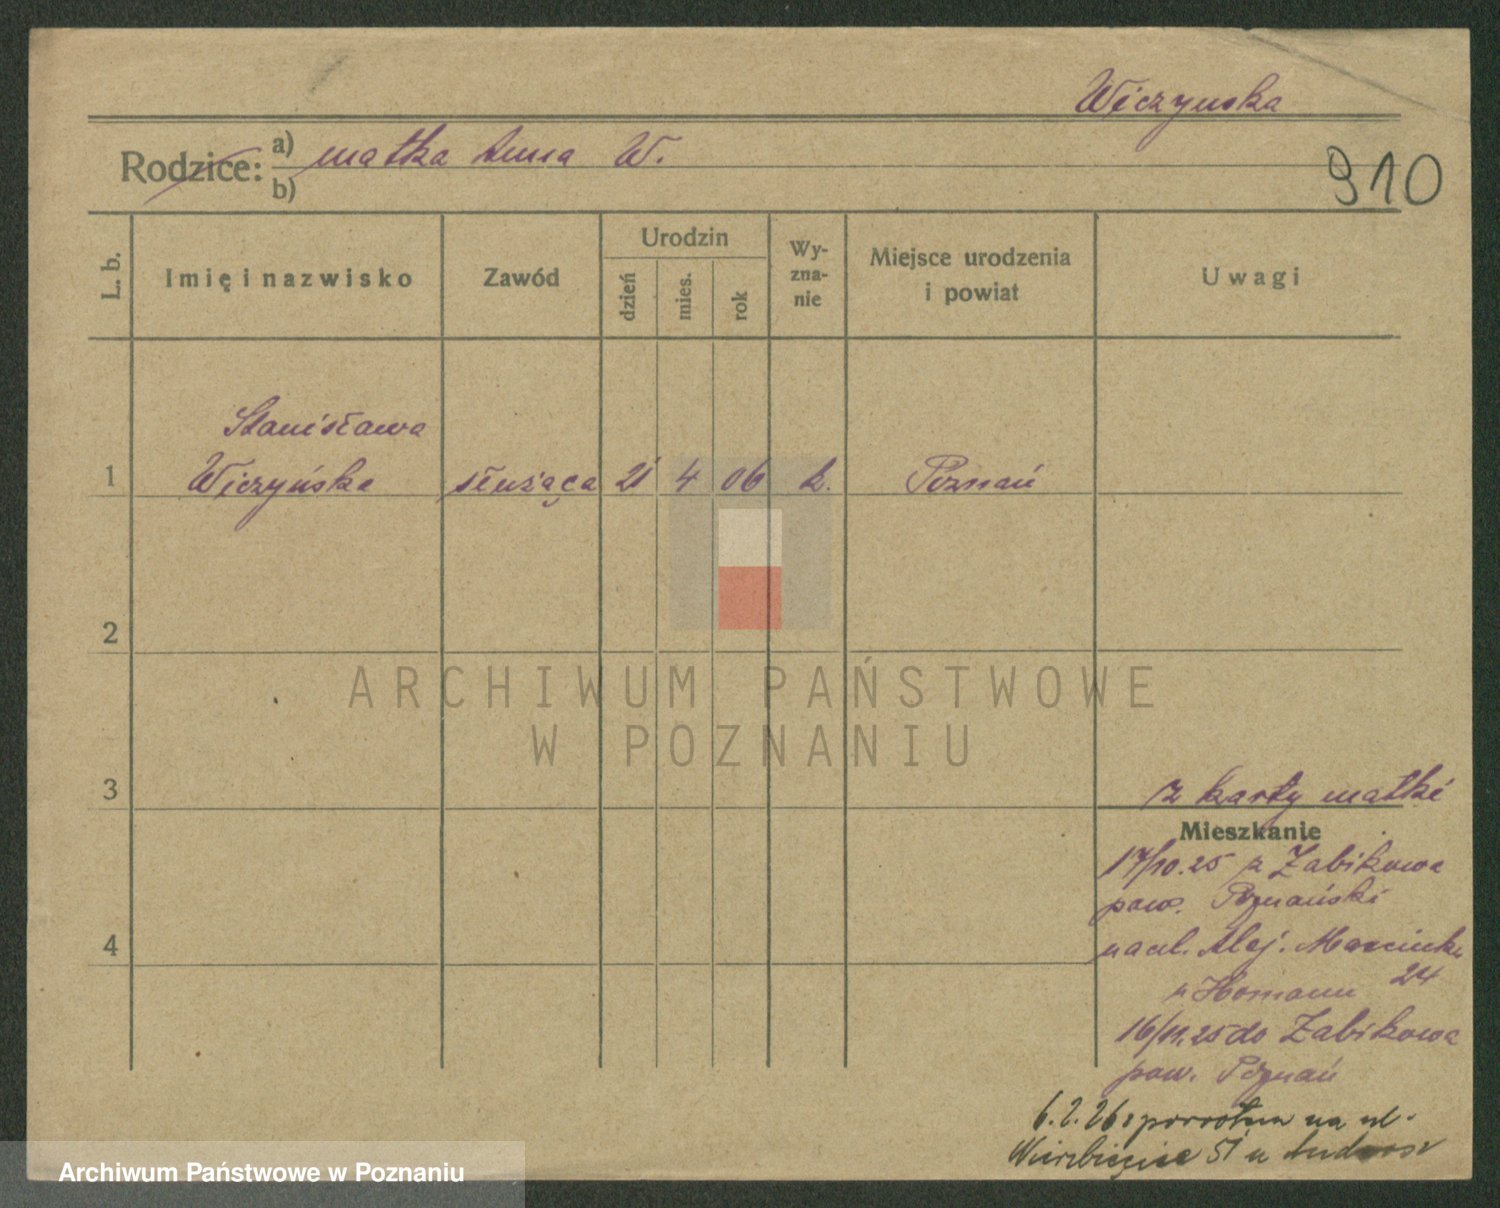 Wiczyńska
Rodzice: a) matka Anna W.
b)
910
L. b.
Imię i nazwisko
Zawód
Urodzin
dzień
mies.
rok
Wy-
zna-
nie
Miejsce urodzenia
i powiat
Uwagi
Stanisława
1 Wiczyńska służąca 21 4 06 k. Poznań
2
ARCHIWUM PAŃSTWOWE
W POZNANIU
3
z karty matki
Mieszkanie
17/10.25 z Żabikowa
pow. Poznański
na ul. Alej. Marcink.
24
u Homann
16/11.25 do Żabikowa
pow. Poznań
4
6.2.26 z powrotem na ul.
Wierzbięcice 51 u
Archiwum Państwowe w Poznaniu